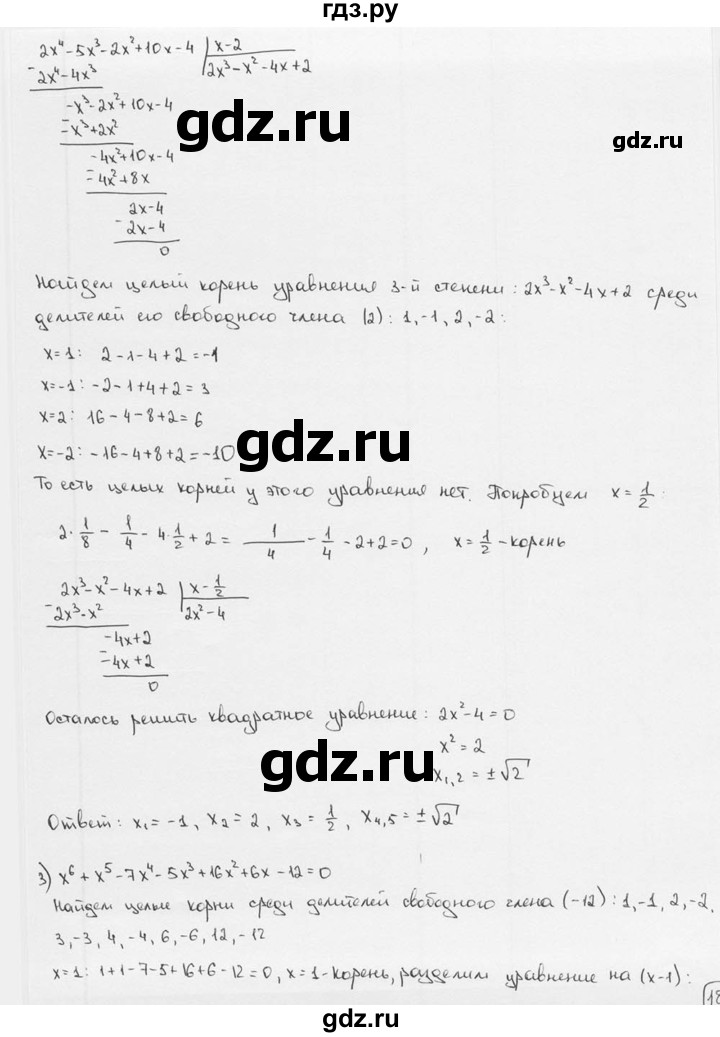 гдз.ру
2x⁴-5x³-2x²+10x-4 | x-2
-2x⁴-4x³ 2x³-x²-4x+2
-x³-2x²+10x-4
-x³+2x²
gdz.ru
gdz.ru
-4x²+10x-4
-4x²+8x
2x-4
-2x-4
0
Найдем целый корень уравнения 3-й степени: 2x³-x²-4x+2 среди
делителей его свободного члена (2): 1,-1, 2,-2:
x=1: 2-1-4+2=-1
x=-1: -2-1+4+2=3
x=2: 16-4-8+2=6
x=-2: -16-4+8+2=-10
gdz.ru
То есть целых корней у этого уравнения нет. Попробуем x=1/2:
2·1/8 - 1/4 - 4·1/2 + 2 = 1/4 - 1/4 - 2+2=0, x=1/2-корень
2x³-x²-4x+2 | x-1/2
-2x³-x² 2x²-4
-4x+2
-4x+2
0
Осталось решить квадратное уравнение: 2x²-4=0
x²=2
gdz.ru
x₁,₂=±√2
Ответ: x₁=-1, x₂=2, x₃=1/2, x₄,₅=±√2
3) x⁶+x⁵-7x⁴-5x³+16x²+6x-12=0
Найдем целые корни среди делителей свободного члена (-12): 1,-1, 2,-2,
3,-3, 4,-4, 6,-6, 12,-12
x=1: 1+1-7-5+16+6-12=0, x=1-корень, разделим уравнение на (x-1):
18
gdz.ru